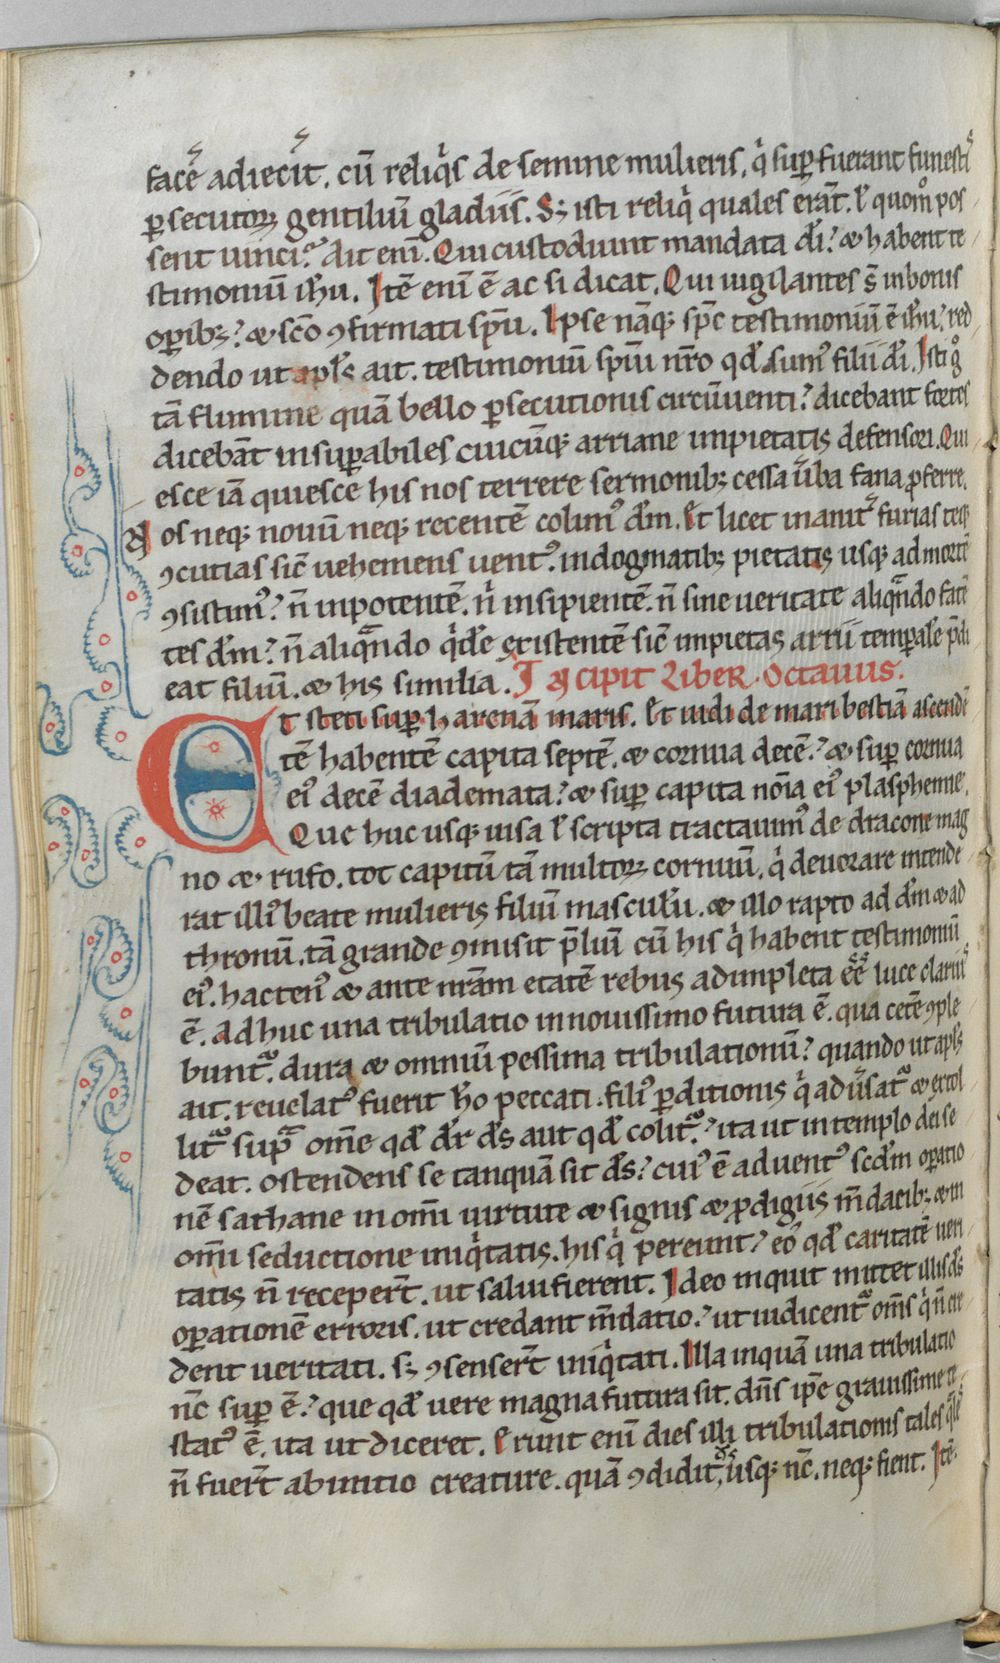 facē adiecit. cū reliq's de semine mulieris. q' sup fuerant funesti
psecutoꝝ gentiliū gladiis. Sꝫ isti reliq' quales erāt. ł quom° pos
sent uinci? Ait eni. Qui custodiunt mandata dī? & habent te
stimoniū ihu. Itē enī ē ac si dicat. Qui uigilantes s̄ in bonis
opibꝫ? & scō ꝯfirmati spū. Ipse nāqꝫ spc testimoniū ē ihu? red
dendo ut apl's ait. testimoniū spiu nr̄o qđ sum' filii dī. Isti g°
tā flumine quā bello psecutionis circūuenti? dicebant fortes
dicebāt insupabiles cuicūqꝫ arriane impietatis defensori. Qui
esce iā quiesce his nos terrere sermonibꝫ cessa ūba fana ꝓferre.
Nos neqꝫ nouū neqꝫ recentē colim' dm̄. Et licet inanit' furias teqꝫ
ꝯcutias sic̄ uehemens uent'. in dogmatibꝫ pietatis usqꝫ ad mortē
ꝯsistim'? n̄ inpotentē. n̄ insipientē. n̄ sine ueritate aliqn̄do faten
tes dm̄? n̄ aliqn̄do q'dē existentē sic̄ impietas arrii tempale p̄di
cat filiū. & his similia. Incipit Liber Octauus.
Et steti sup harenā maris. Et uidi de mari bestiā ascendē
tē habentē capita septē. & cornua decē? & sup cornua
ei' decē diademata? & sup capita nōia ei' plasphemie.
Que huc usqꝫ uisa ł scripta tractauim' de dracone mag
no & rufo. tot capitū tā multoꝝ cornuū. q' deuorare intende
rat illi' beate mulieris filiū masculū. & illo rapto ad dm̄ & ad
thronū. tā grande ꝯmisit p̄liū cū his q' habent testimoniū
ei'. hacten' & ante nr̄am etatē rebus adimpleta eē luce clarius
ē. adhuc una tribulatio in nouissimo futura ē. qua cetē ꝯple
bunt'. dura & omniū pessima tribulationū? quando ut apl's
ait. reuelat' fuerit ho peccati. fili' pditionis q' adūsat' & extol
lit' supra om̄e qđ dr̄ ds̄ aut qđ colit'? ita ut in templo dei se
deat. ostendens se tanquā sit ds̄? cui' ē aduent' scd̄m opatio
nē sathane in om̄i uirtute & signis & ꝓdigiis m̄dacibꝫ & in
om̄i seductione iniq'tatis. his q' pereunt? eo qđ caritatē ueri
tatis n̄ receper̄t. ut salui fierent. Ideo inquit mittet illis ds̄
opationē erroris. ut credant m̄datio? ut iudicent' om̄s q' n̄ cre
dent ueritati. sꝫ ꝯsenser̄t iniq'tati. Illa inquā una tribulatio
nc̄ sup ē? que qđ uere magna futura sit. dn̄s ipē grauissime te
stat' ē. ita ut diceret. Erunt enī dies illi tribulationis tales q'les
n̄ fuer̄t ab initio creature. quā ꝯdidit ds̄ usqꝫ nc̄. neqꝫ fient. Itē